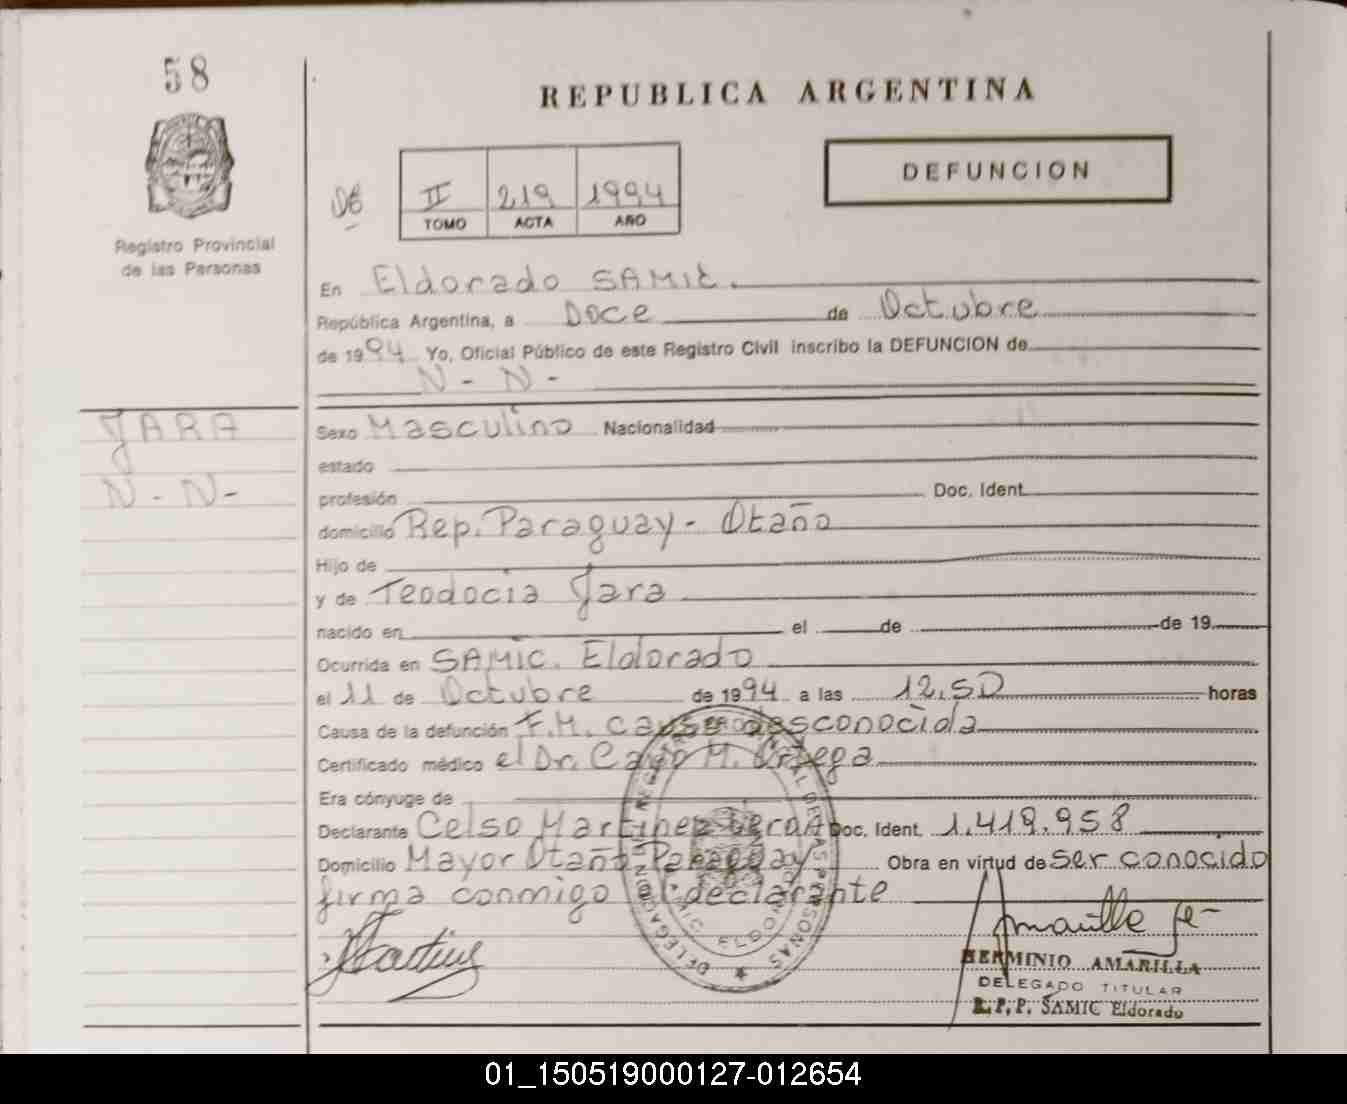 58
REPUBLICA ARGENTINA
DEFUNCION
II 219 1994
TOMO ACTA AÑO
Registro Provincial
de las Personas
En Eldorado SAMIC.
República Argentina, a Doce de Octubre
de 1994 Yo, Oficial Público de este Registro Civil inscribo la DEFUNCION de
N - N -
JARA
N - N -
Sexo Masculino Nacionalidad
estado
profesión Doc. Ident.
domicilio Rep. Paraguay - Otaño
Hijo de
y de Teodocia Jara
nacido en el de de 19
Ocurrida en SAMIC. Eldorado
el 11 de Octubre de 1994 a las 12,50 horas
Causa de la defunción F.M. causa desconocida
Certificado médico el Dr. M. Ortega
Era cónyuge de
Declarante Celso Martinez Doc. Ident. 1.419.958
Domicilio Mayor Otaño Paraguay Obra en virtud de ser conocido
firma conmigo declarante
HERMINIO AMARILLA
DELEGADO TITULAR
R.P.P. SAMIC Eldorado
01_150519000127-012654